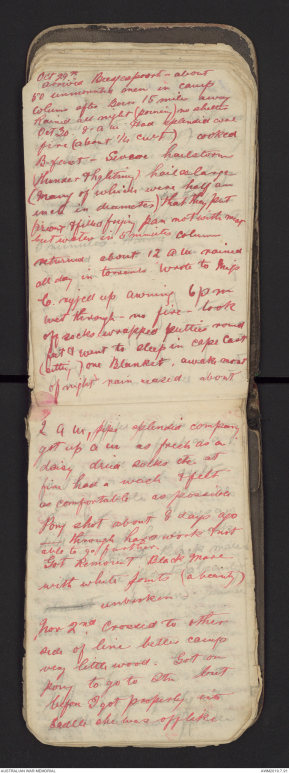 Oct 29th
arrived Bredepoort - about
50 unmounted men in camp
column after Boers 15 mile away
Rained all night (pouring) no shelter
Oct 30. 8 a m Had splendid wood
fire (about 1/2 cwt) cooked
Bfast - Severe hailstorm
thunder & lightning) hail so large
(many of which were half an
inch in diameter) that they put
fire out & filled frying pan not with meat
but water in 5 minutes column
returned about 12 a m rained
all day in torrents wrote to Miss
C. rigged up awning 6 p m
wet through - no fire - took
off socks wrapped putties round
feet & went to sleep in cape last
one Blanket, awake most
of night rain ceased about
2 a m, pipe splendid company
got up a m as fresh as a
daisy dried socks etc at
fire had a wash & felt
as comfortable as possible
Pony shot about 8 days ago
through hard work not
able to go further
Got Remount Black Mare
with white points (a beauty)
unbroken
Nov 2nd Crossed to other
side of line better camp
very little wood. Got on
pony to go to Stn but
before I got properly into
saddle she was off like
AUSTRALIAN WAR MEMORIAL